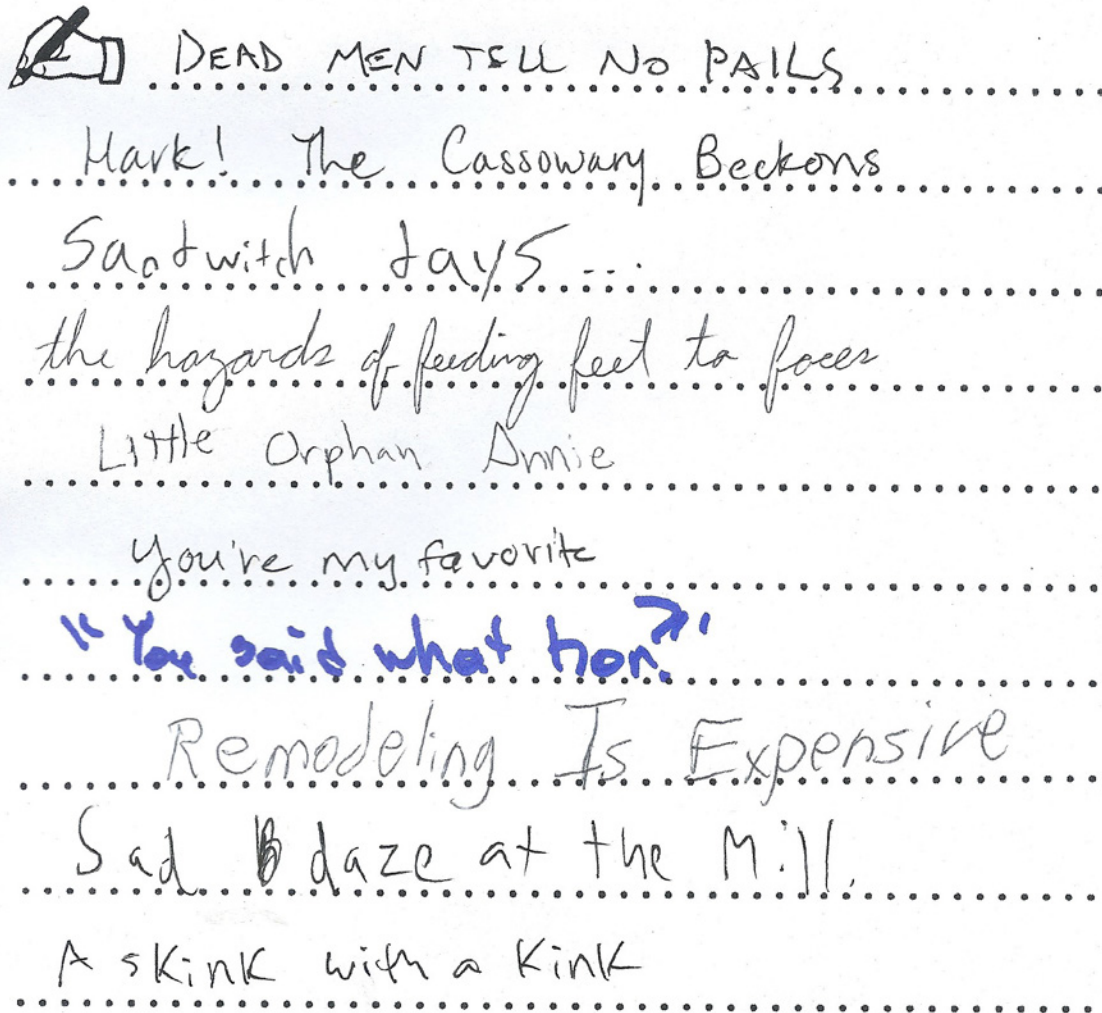 DEAD MEN TELL NO PAILS
Hark! The Cassowary Beckons
Sandwitch days...
the hazards of feeding feet to faces
Little Orphan Annie
You're my favorite
"You said what hon?"
Remodeling Is Expensive
Sad daze at the Mill.
A skink with a Kink